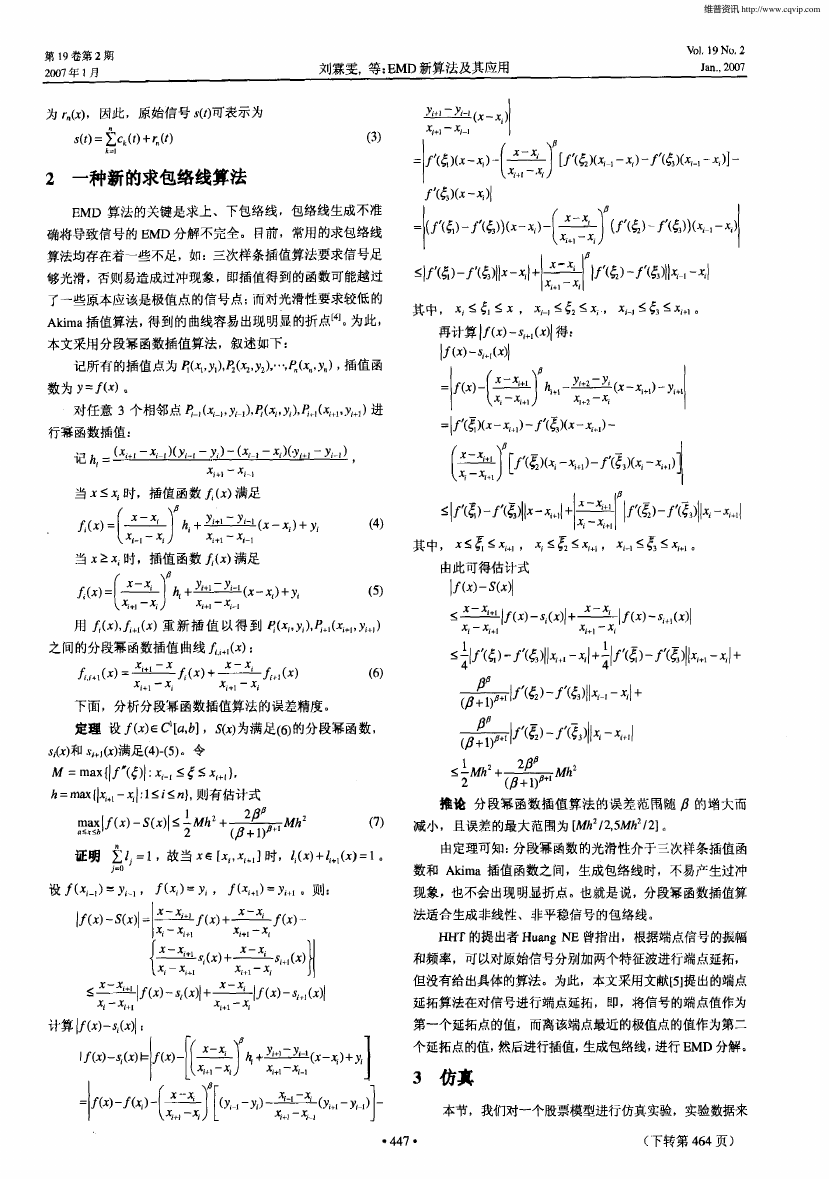 维普资讯 http://www.cqvip.com
第 19 卷第 2 期
2007 年 1 月
刘霖雯, 等: EMD 新算法及其应用
Vol. 19 No. 2
Jan., 2007
为 r_n(x), 因此, 原始信号 s(t)可表示为
s(t) = ∑_{k=1}^{n} c_k(t) + r_n(t) (3)
2 一种新的求包络线算法
EMD 算法的关键是求上、下包络线, 包络线生成不准
确将导致信号的 EMD 分解不完全。目前, 常用的求包络线
算法均存在着一些不足, 如: 三次样条插值算法要求信号足
够光滑, 否则易造成过冲现象, 即插值得到的函数可能越过
了一些原本应该是极值点的信号点; 而对光滑性要求较低的
Akima 插值算法, 得到的曲线容易出现明显的折点[4]。为此,
本文采用分段幂函数插值算法, 叙述如下:
记所有的插值点为 P_1(x_1,y_1),P_2(x_2,y_2),···,P_n(x_n,y_n) , 插值函
数为 y = f(x) 。
对任意 3 个相邻点 P_{i-1}(x_{i-1},y_{i-1}),P_i(x_i,y_i),P_{i+1}(x_{i+1},y_{i+1}) 进
行幂函数插值:
记 h_i = ((x_{i+1} - x_{i-1})(y_{i-1} - y_i) - (x_{i-1} - x_i)(y_{i+1} - y_{i-1})) / (x_{i+1} - x_{i-1}) ,
当 x ≤ x_i 时, 插值函数 f_i(x) 满足
f_i(x) = ((x - x_i)/(x_{i-1} - x_i))^β h_i + (y_{i+1} - y_{i-1})/(x_{i+1} - x_{i-1}) (x - x_i) + y_i (4)
当 x ≥ x_i 时, 插值函数 f_i(x) 满足
f_i(x) = ((x - x_i)/(x_{i+1} - x_i))^β h_i + (y_{i+1} - y_{i-1})/(x_{i+1} - x_{i-1}) (x - x_i) + y_i (5)
用 f_i(x),f_{i+1}(x) 重新插值以得到 P_i(x_i,y_i),P_{i+1}(x_{i+1},y_{i+1})
之间的分段幂函数插值曲线 f_{i,i+1}(x) :
f_{i,i+1}(x) = (x_{i+1} - x)/(x_{i+1} - x_i) f_i(x) + (x - x_i)/(x_{i+1} - x_i) f_{i+1}(x) (6)
下面, 分析分段幂函数插值算法的误差精度。
定理 设 f(x)∈C¹[a,b] , S(x)为满足(6)的分段幂函数,
s_i(x)和 s_{i+1}(x)满足(4)-(5)。令
M = max{|f″(ξ)| : x_{i-1} ≤ ξ ≤ x_{i+1}},
h = max{|x_{i+1} - x_i| : 1 ≤ i ≤ n}, 则有估计式
max_{a≤x≤b} |f(x) - S(x)| ≤ 1/2 Mh² + 2β^β/(β+1)^{β+1} Mh² (7)
证明 ∑_{j=0}^{n} l_j = 1 , 故当 x∈[x_i, x_{i+1}] 时, l_i(x) + l_{i+1}(x) = 1 。
设 f(x_{i-1}) = y_{i-1} , f(x_i) = y_i , f(x_{i+1}) = y_{i+1} 。则:
|f(x) - S(x)| = |(x - x_{i+1})/(x_i - x_{i+1}) f(x) + (x - x_i)/(x_{i+1} - x_i) f(x) -
{(x - x_{i+1})/(x_i - x_{i+1}) s_i(x) + (x - x_i)/(x_{i+1} - x_i) s_{i+1}(x)}|
≤ (x - x_{i+1})/(x_i - x_{i+1}) |f(x) - s_i(x)| + (x - x_i)/(x_{i+1} - x_i) |f(x) - s_{i+1}(x)|
计算 |f(x) - s_i(x)| :
|f(x) - s_i(x)| = |f(x) - [((x - x_i)/(x_{i+1} - x_i))^β h_i + (y_{i+1} - y_{i-1})/(x_{i+1} - x_{i-1}) (x - x_i) + y_i]
= |f(x) - f(x_i) - ((x - x_i)/(x_{i+1} - x_i))^β [(y_{i-1} - y_i) - (x_{i-1} - x_i)/(x_{i+1} - x_{i-1}) (y_{i+1} - y_{i-1})] -
(y_{i+1} - y_{i-1})/(x_{i+1} - x_{i-1}) (x - x_i)|
= |f′(ξ_1)(x - x_i) - ((x - x_i)/(x_{i+1} - x_i))^β [f′(ξ_2)(x_{i-1} - x_i) - f′(ξ_3)(x_{i-1} - x_i)] -
f′(ξ_3)(x - x_i)|
= |(f′(ξ_1) - f′(ξ_3))(x - x_i) - ((x - x_i)/(x_{i+1} - x_i))^β (f′(ξ_2) - f′(ξ_3))(x_{i-1} - x_i)|
≤ |f′(ξ_1) - f′(ξ_3)||x - x_i| + |(x - x_i)/(x_{i+1} - x_i)|^β |f′(ξ_2) - f′(ξ_3)||x_{i-1} - x_i|
其中, x_i ≤ ξ_1 ≤ x , x_{i-1} ≤ ξ_2 ≤ x_i , x_{i-1} ≤ ξ_3 ≤ x_{i+1} 。
再计算 |f(x) - s_{i+1}(x)| 得:
|f(x) - s_{i+1}(x)|
= |f(x) - ((x - x_{i+1})/(x_i - x_{i+1}))^β h_{i+1} - (y_{i+2} - y_i)/(x_{i+2} - x_i) (x - x_{i+1}) - y_{i+1}|
= |f′(ξ̄_1)(x - x_{i+1}) - f′(ξ̄_3)(x - x_{i+1}) -
((x - x_{i+1})/(x_i - x_{i+1}))^β [f′(ξ̄_2)(x_i - x_{i+1}) - f′(ξ̄_3)(x_i - x_{i+1})]|
≤ |f′(ξ̄_1) - f′(ξ̄_3)||x - x_{i+1}| + |(x - x_{i+1})/(x_i - x_{i+1})|^β |f′(ξ̄_2) - f′(ξ̄_3)||x_i - x_{i+1}|
其中, x ≤ ξ̄_1 ≤ x_{i+1} , x_i ≤ ξ̄_2 ≤ x_{i+1} , x_{i-1} ≤ ξ̄_3 ≤ x_{i+1} 。
由此可得估计式
|f(x) - S(x)|
≤ (x - x_{i+1})/(x_i - x_{i+1}) |f(x) - s_i(x)| + (x - x_i)/(x_{i+1} - x_i) |f(x) - s_{i+1}(x)|
≤ 1/4 |f′(ξ_1) - f′(ξ_3)||x_{i+1} - x_i| + 1/4 |f′(ξ̄_1) - f′(ξ̄_3)||x_{i+1} - x_i| +
β^β/(β+1)^{β+1} |f′(ξ_2) - f′(ξ_3)||x_{i-1} - x_i| +
β^β/(β+1)^{β+1} |f′(ξ̄_2) - f′(ξ̄_3)||x_i - x_{i+1}|
≤ 1/2 Mh² + 2β^β/(β+1)^{β+1} Mh²
推论 分段幂函数插值算法的误差范围随 β 的增大而
减小, 且误差的最大范围为 [Mh²/2,5Mh²/2] 。
由定理可知: 分段幂函数的光滑性介于三次样条插值函
数和 Akima 插值函数之间, 生成包络线时, 不易产生过冲
现象, 也不会出现明显折点。也就是说, 分段幂函数插值算
法适合生成非线性、非平稳信号的包络线。
HHT 的提出者 Huang NE 曾指出, 根据端点信号的振幅
和频率, 可以对原始信号分别加两个特征波进行端点延拓,
但没有给出具体的算法。为此, 本文采用文献[5]提出的端点
延拓算法在对信号进行端点延拓, 即, 将信号的端点值作为
第一个延拓点的值, 而离该端点最近的极值点的值作为第二
个延拓点的值, 然后进行插值, 生成包络线, 进行 EMD 分解。
3 仿真
本节, 我们对一个股票模型进行仿真实验, 实验数据来
• 447 •
(下转第 464 页)